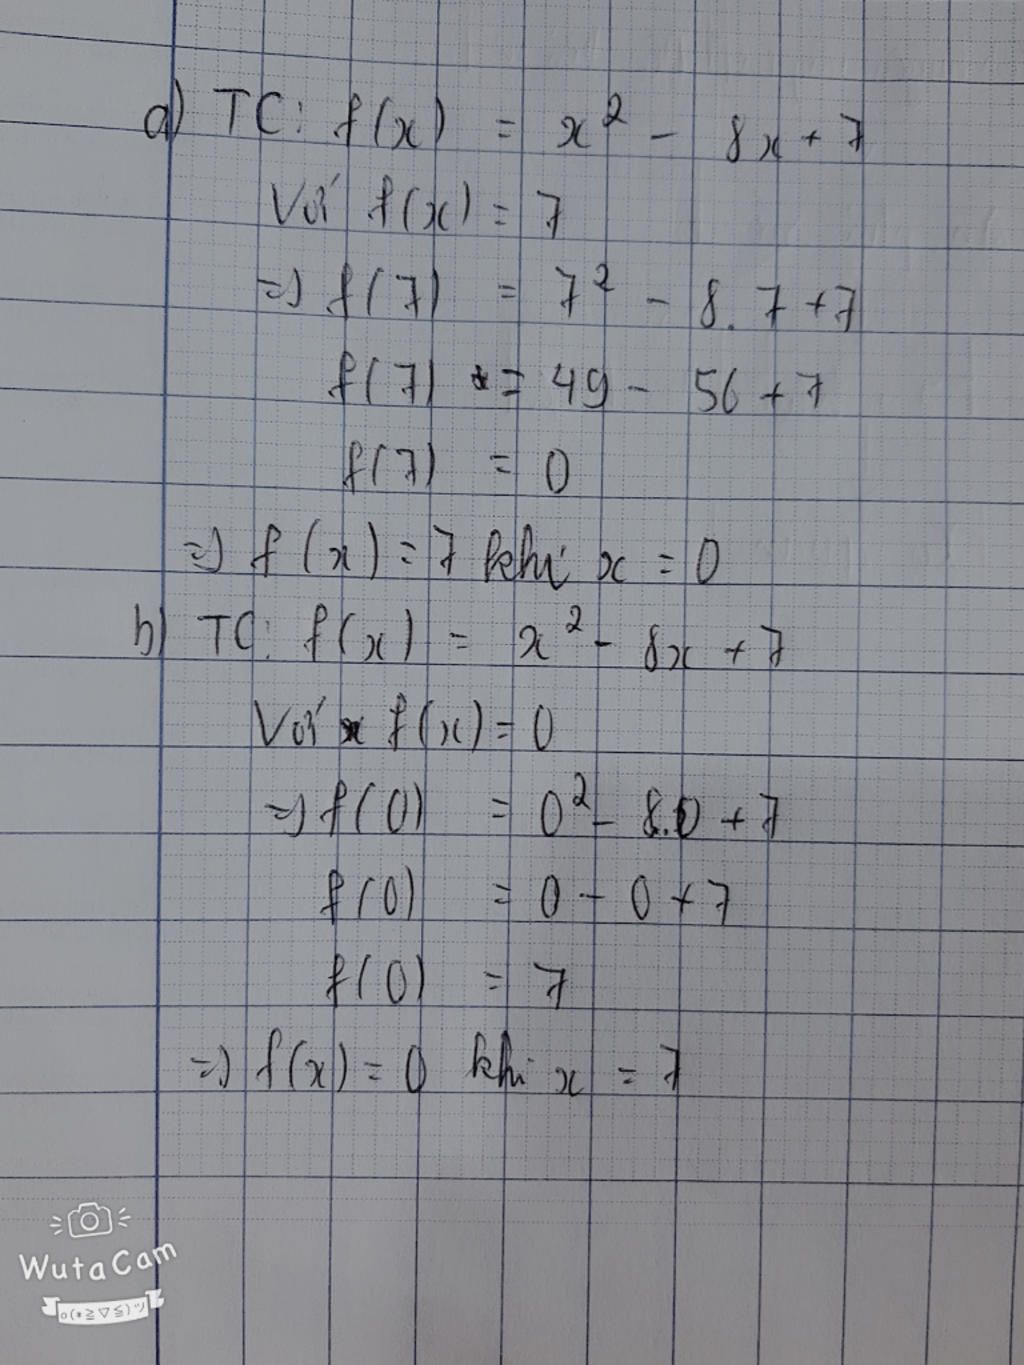 a) TC: f(x) = x² - 8x + 7
Với f(x) = 7
=> f(7) = 7² - 8.7 + 7
f(7) = 49 - 56 + 7
f(7) = 0
=> f(x) = 7 khi x = 0
b) TC: f(x) = x² - 8x + 7
Với f(x) = 0
=> f(0) = 0² - 8.0 + 7
f(0) = 0 - 0 + 7
f(0) = 7
=> f(x) = 0 khi x = 7
WutaCam
o(*≧▽≦)ツ